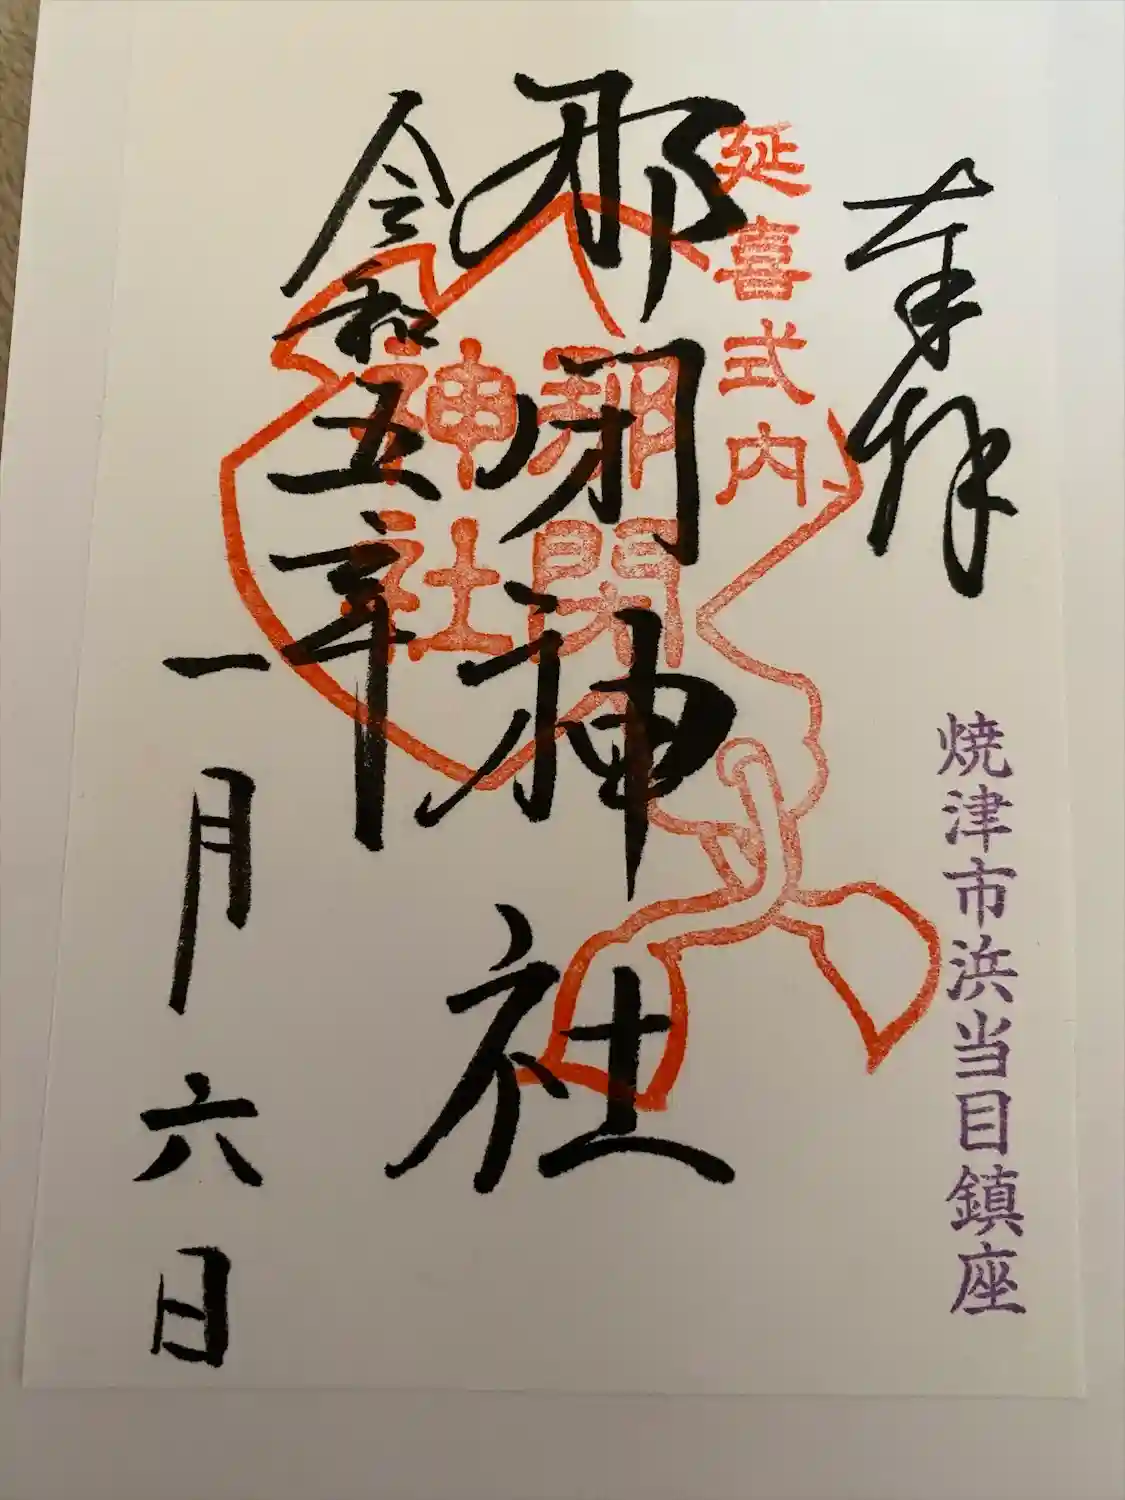 奉拝
焼津市浜当目鎮座
延喜式内
那閉神社
那閉
神社
令和五年
一月六日